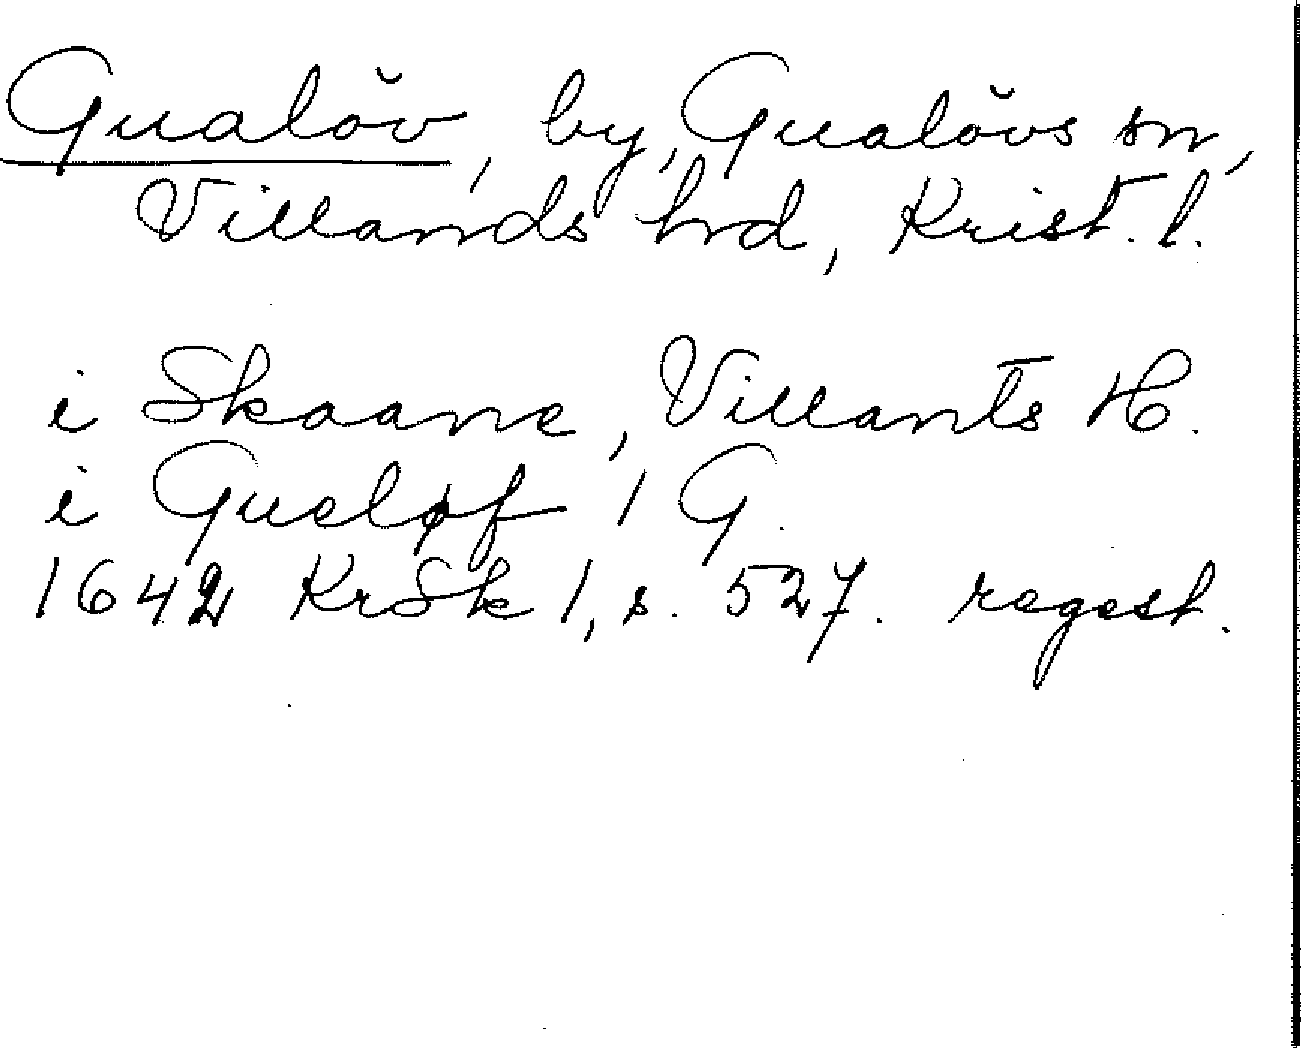 Gualöv, by, Gualövs sn,
Villands hrd, Krist. l.
i Skaane, Villants H.
i Gueløf, 1 G.
1642 KrSk 1, s. 527. regest.